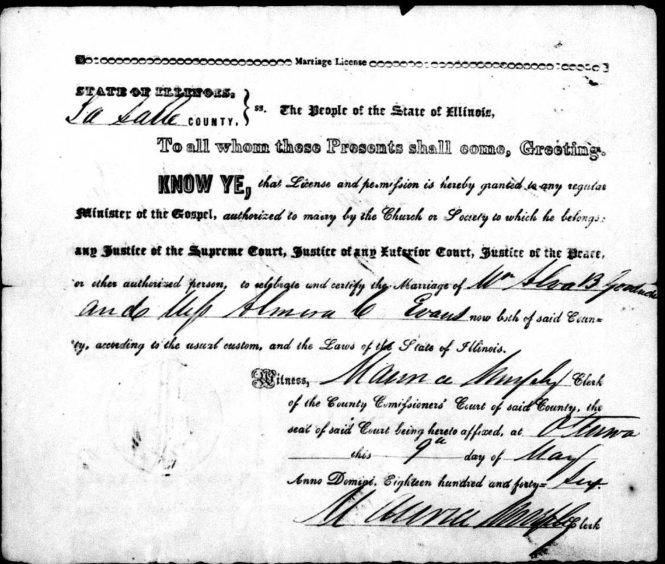 Marriage License
STATE OF ILLINOIS.
La Salle COUNTY, } ss. The People of the State of Illinois,
To all whom these Presents shall come, Greeting.
KNOW YE, that License and permission is hereby granted to any regular
Minister of the Gospel, authorized to marry by the Church or Society to which he belongs:
any Justice of the Supreme Court, Justice of any Inferior Court, Justice of the Peace,
or other authorized person, to celebrate and certify the Marriage of Mr Alva B
and Miss Almira C Evans now both of said Coun=
ty, according to the usual custom, and the Laws of the State of Illinois.
Witness, Maurice Murphy Clerk
of the County Comissioners' Court of said County, the
seat of said Court being hereto affixed, at Ottawa
this 9th day of May
Anno Domini. Eighteen hundred and forty= Six.
Maurice Murphy Clerk